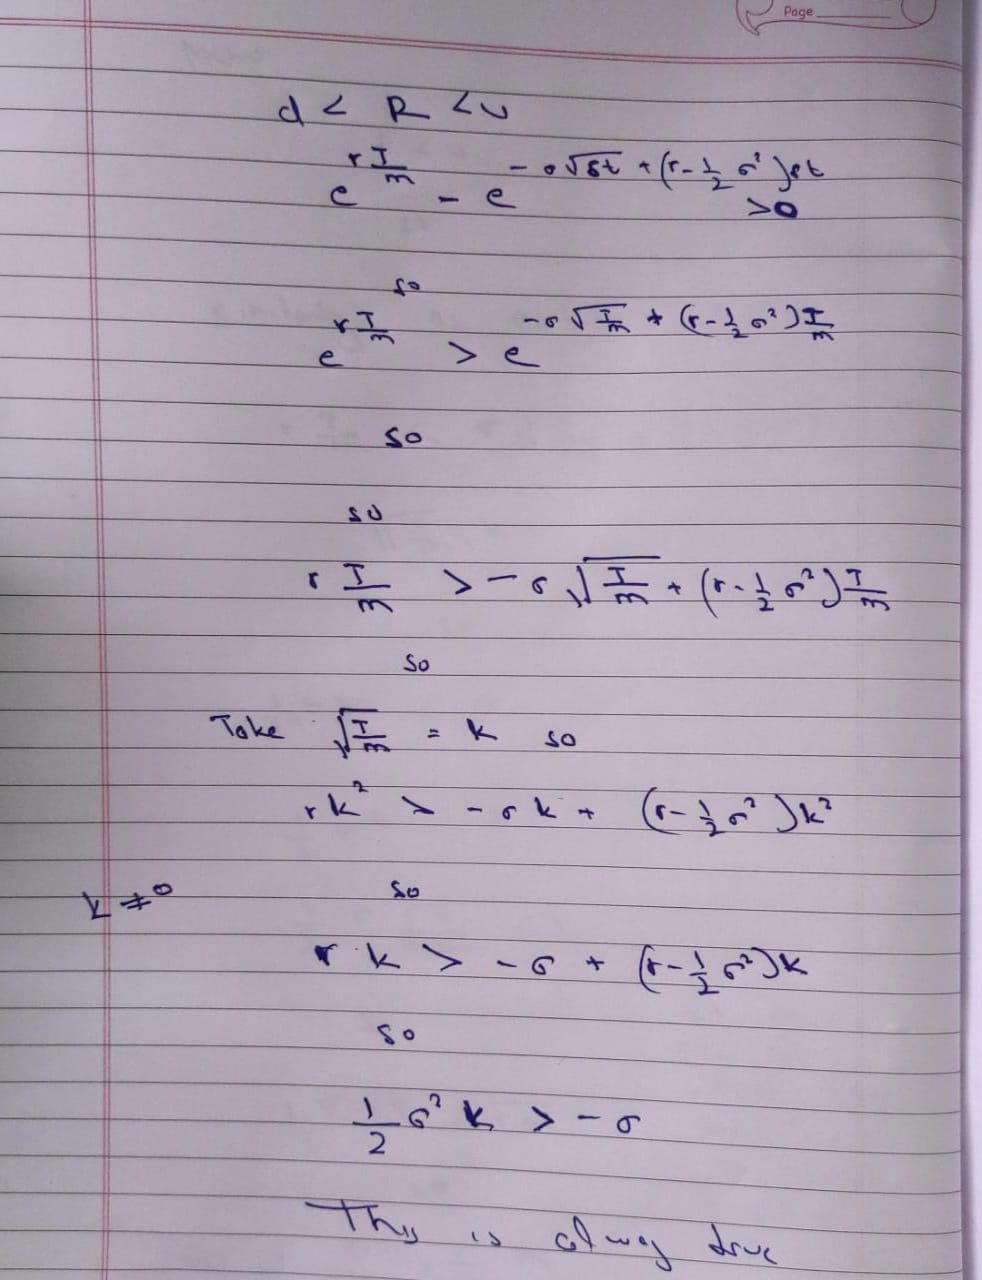 Page
d < R < u
e^{r T/m} - e^{-σ√δt + (r - 1/2 σ²)δt} > 0
so
e^{r T/m} > e^{-σ√(T/m) + (r - 1/2 σ²) T/m}
so
so
r T/m > -σ √(T/m) + (r - 1/2 σ²) T/m
so
Take √(T/m) = k so
rk² > -σk + (r - 1/2 σ²)k²
k ≠ 0 so
rk > -σ + (r - 1/2 σ²)k
so
1/2 σ² k > -σ
This is alway true